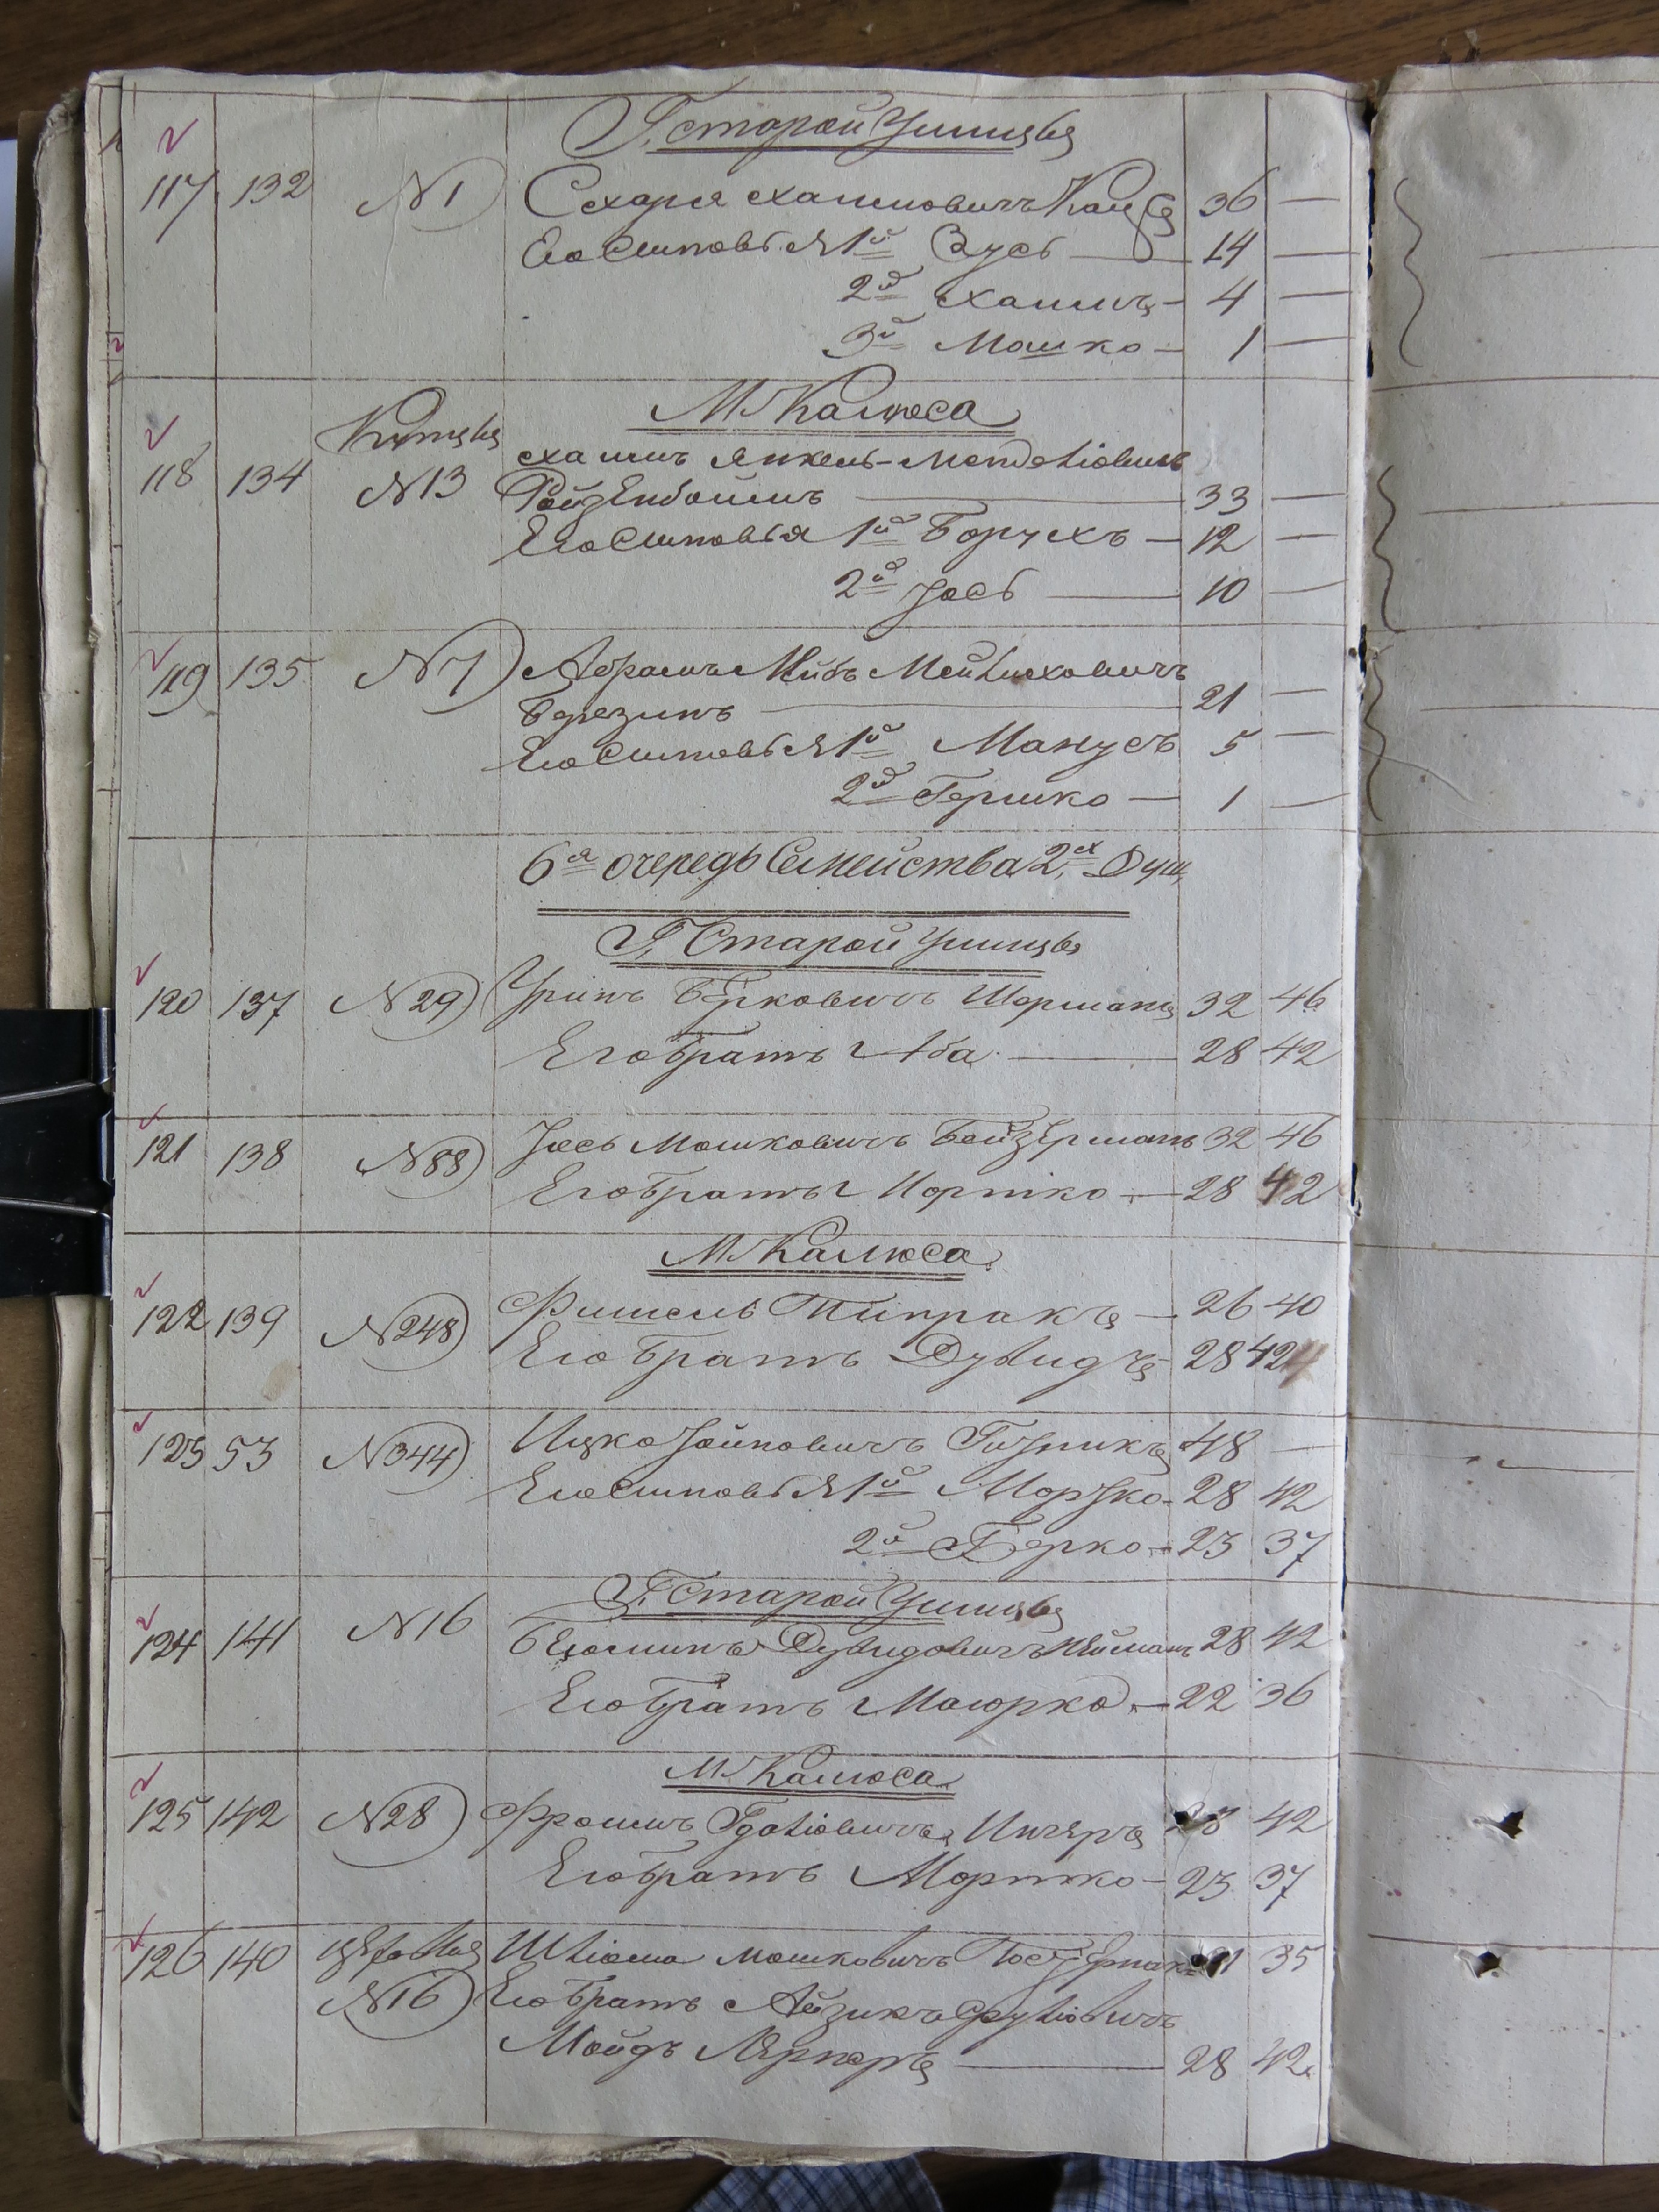 Г. Старой Ушицы
117 132 N1 Схаря Хаимовичъ Кац 36 —
Его Сыновья 1й Зусь — 14 —
2й Хаимъ — 4 —
3й Мошко — 1 —
М. Калюса
Купцы
Хаимъ Янкель-Менделіовичъ
118 134 N13 Ройзенбоимъ — 33 —
Его Сыновья 1й Борухъ — 12 —
2й Іось — 10 —
119 135 N7 Абрамъ Лейбъ Мейлиховичъ
Березинъ — 21 —
Его Сыновья 1й Манусъ 5 —
2й Гершко — 1 —
6я очередь Семейства 2х Душ
Г. Старой Ушицы
120 137 N29 Уринъ Берковичъ Шерманъ 32 46
Его братъ Аба — 28 42
121 138 N88 Іось Мошковичъ Бейзерманъ 32 46
Его братъ Иортко — 28 42
М. Калюса
122 139 N248 Фишель Типракъ — 26 40
Его братъ Дувидъ — 28 42
123 53 N344 Ицко Іойновичъ 48 —
Его Сыновья 1й Мордко — 28 42
2й Берко — 23 37
Г. Старой Ушицы
124 141 N16 Беюминъ Дувидовичъ Нейманъ 28 42
Его братъ Маюрко — 22 36
М. Калюса
125 142 N28 Фроимъ Ингеръ 28 42
Его братъ Мортко — 23 37
126 140 N16 Шліома Мошковичъ 21 35
Его братъ Айзикъ Сруліовичъ
Мойдъ Лернеръ — 28 42